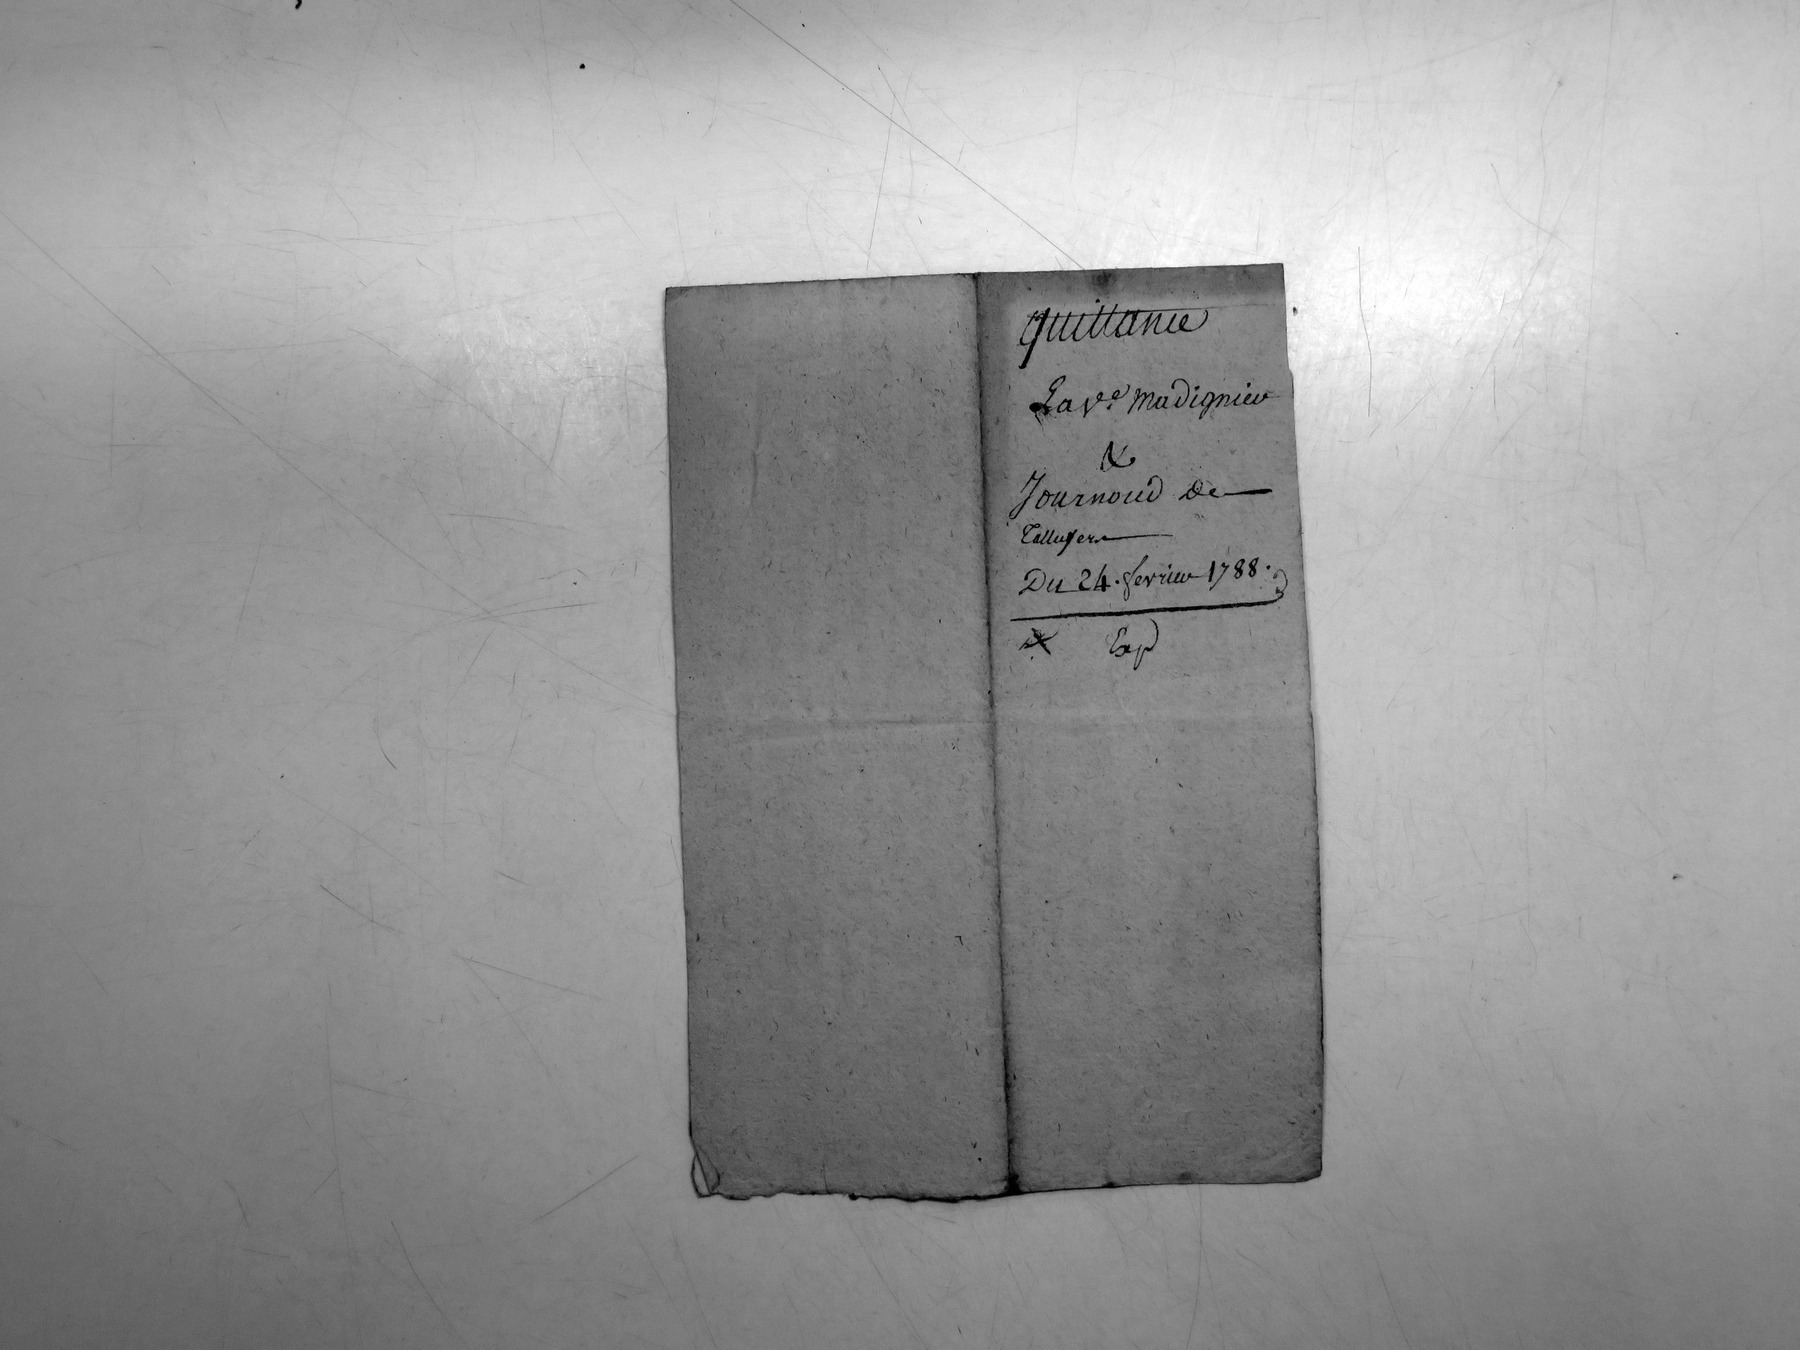 quittance
La ve. Madignier
&
Journoud De
Talluyers
Du 24. fevrier 1788.
Exp